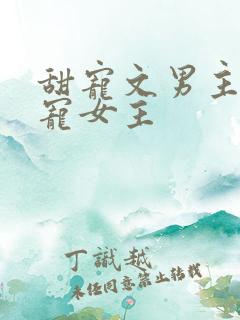 甜寵文男主
寵女主
丁識越
未經同意禁止轉載